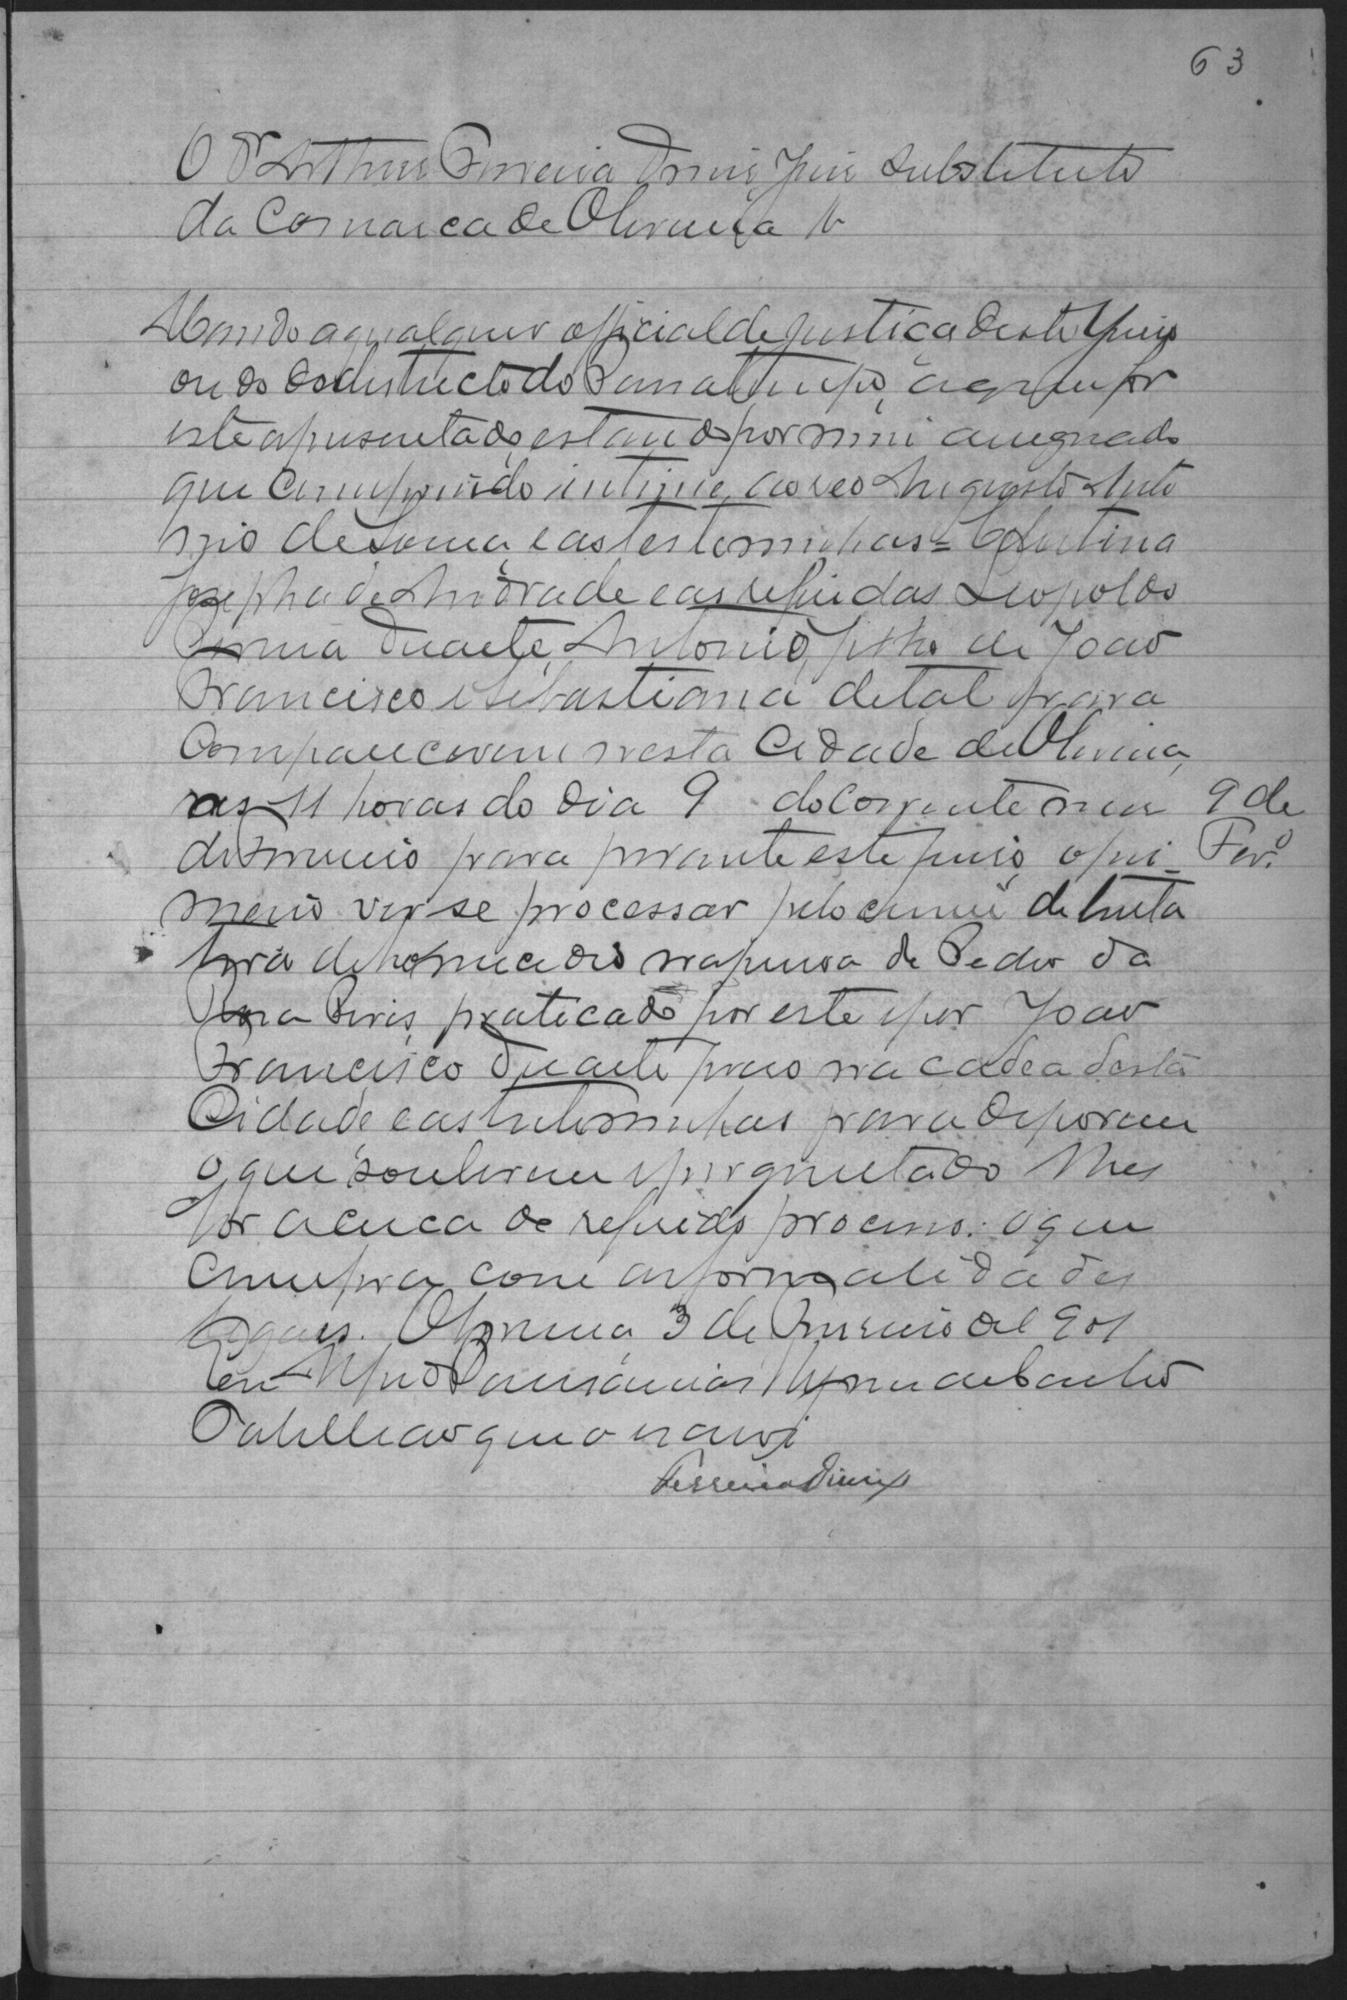 63
O Dr Arthur Ferreira Diniz Juiz Substituto
da Comarca de Oliveira &
Mando a qualquer official de justiça deste Juizo
ou do do districto do Passatempo, a quem for
este apresentado, estando por mim assignado
que cumprindo intime ao reo Augusto Anto
nio de Souza e as testemunhas =
Josepha de Andrade e as referidas Leopoldo
Duarte, Antonio, filho de João
Francisco e Sebastiana de tal para
comparecerem nesta Cidade de Oliveira,
as 11 horas do dia 9 do corrente mez
9 de
Fevo
de Fevereiro para perante este juizo, o pri
meiro ver se processar pelo crime de tenta
tiva de homicidio na pessoa de Pedro da
Pires, praticado por este e por João
Francisco Duarte preso na cadea desta
Cidade, e as testemunhas para deporem
o que souberem e perguntado lhes
for acerca do referido processo. O que
cumpra com as formalidades
legaes. Oliveira 3 de Fevereiro de 1901
Eu
Tabellião que o escrevi
Ferreira Diniz